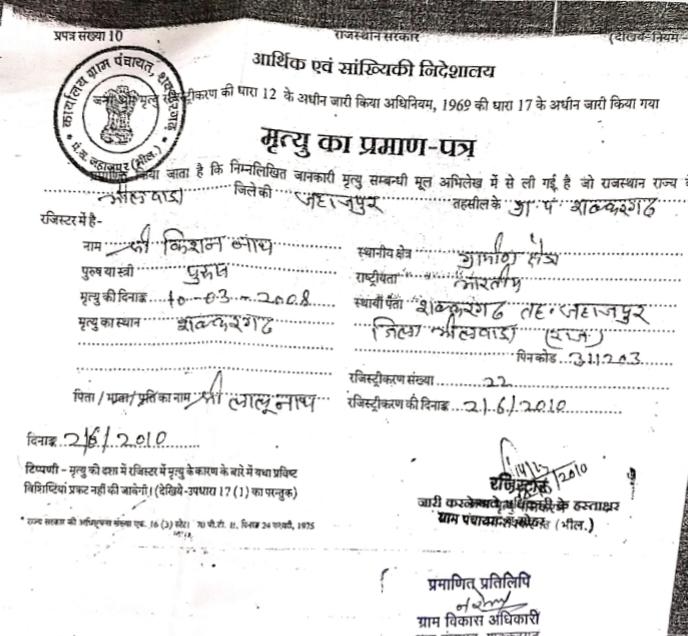 प्रपत्र संख्या 10 राजस्थान सरकार (देखिये-नियम-
आर्थिक एवं सांख्यिकी निदेशालय
कार्यालय ग्राम पंचायत, शक्करगढ़
पं.स. जहाजपुर (भील.)
जन्म और मृत्यु रजिस्ट्रीकरण की धारा 12 के अधीन जारी किया अधिनियम, 1969 की धारा 17 के अधीन जारी किया गया
मृत्यु का प्रमाण-पत्र
प्रमाणित किया जाता है कि निम्नलिखित जानकारी मृत्यु सम्बन्धी मूल अभिलेख में से ली गई है जो राजस्थान राज्य के
भीलवाडा जिले की जहाजपुर तहसील के ग्रा पं शक्करगढ
रजिस्टर में है-
नाम श्री किशन नाथ स्थानीय क्षेत्र ग्रामीण क्षेत्र
पुरुष या स्त्री पुरुष राष्ट्रीयता भारतीय
मृत्यु की दिनाङ्क 10-03-2008 स्थायी पता शक्करगढ तह. जहाजपुर
मृत्यु का स्थान शक्करगढ जिला भीलवाडा (राज)
पिनकोड 311203
रजिस्ट्रीकरण संख्या 22
पिता / माता / पति का नाम श्री लालू नाथ रजिस्ट्रीकरण की दिनाङ्क 2/6/2010
दिनाङ्क 2/6/2010
टिप्पणी - मृत्यु की दशा में रजिस्टर में मृत्यु के कारण के बारे में यथा प्रविष्ट
विशिष्टियां प्रकट नहीं की जावेगी। (देखिये-उपधारा 17 (1) का परन्तुक)
* राज्य सरकार की अधिसूचना संख्या एफ. 16 (3) 1975
2010
रजिस्ट्रार
जारी करने वाले के हस्ताक्षर
ग्राम पंचायत (भील.)
प्रमाणित प्रतिलिपि
ग्राम विकास अधिकारी